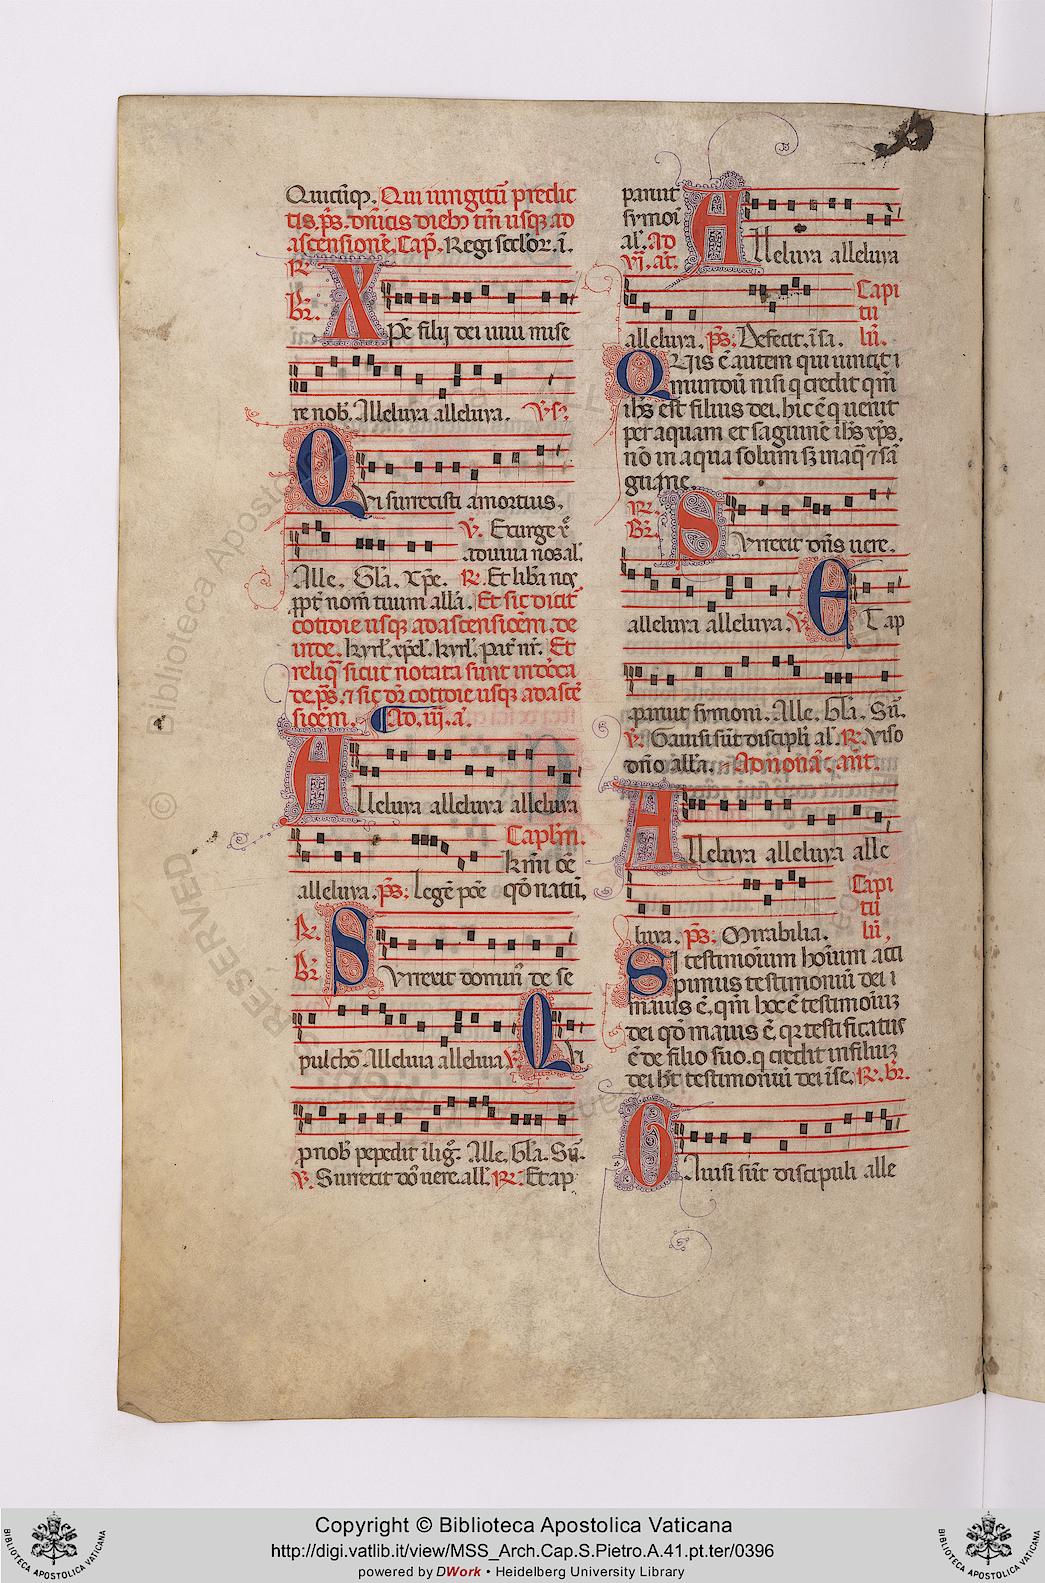 Quicūq;. Qui iungitū predic
tis ps. dnīcis dieb; tm̄ usq; ad
ascensionē. Cap. Regi sclor. ī.
R. br.
Xpē filij dei uiui mise
re nob. Alleluya alleluya. Vs.
Qvi surrexisti a mortuis.
V. Exurge x̄
adiuua nos al.
Alle. Gla. Xpē. R. Et liba nos
ppt nom tuum alla. Et sic dicit
cottidie usq; ad ascensioem. de
inde. kyrl. xpel. kyrl. pat nr. Et
reliq sicut notata sunt in dnīca
de ps. ⁊ sic dr cottidie usq; ad ascē
sioem. Ad .iij. a.
Alleluya alleluya alleluya
Caplm.
kmi cē
alleluya. ps: Legē pōe qd natū.
R. br.
Surrexit dominꝰ de se
pulchō. Alleluia alleluia. V. Qvi
p nob pependit ī lig. Alle. Gla. Sū.
V. Surrexit dō uere. all. R. Et ap
paruit
symoi
al. Ad
VI. at.
Alleluya alleluya
alleluya. ps: Defecit. ī sa.
Capi
tu
lū.
Quis ē autem qui uincit
mundū nisi q credit qm̄
ihs est filius dei. hic ē q uenit
per aquam et saguinē ihs xps.
nō in aqua solum sz in aq̄ ⁊ sā
guine.
R. Br.
Surrexit dn̄s uere.
alleluya alleluya. V. Et ap
paruit symoni. Alle. Gla. Sū.
V. Gauisi sūt discipli al. R. Viso
dn̄o alla. Ad nonā. ant.
Alleluya alleluya alle
luya. ps: Mirabilia.
Capi
tu
lū.
Si testimonium hoīum acci
pimus testimoniū dei
maius ē. qm̄ hoc ē testimoīuz
dei qd maius ē. qz testificatus
ē de filio suo. q credit in filiuz
dei ht testimoniū dei ī se. R. br.
Gauisi sūt discipuli alle
Copyright © Biblioteca Apostolica Vaticana
http://digi.vatlib.it/view/MSS_Arch.Cap.S.Pietro.A.41.pt.ter/0396
powered by DWork • Heidelberg University Library
BIBLIOTECA APOSTOLICA VATICANA
BIBLIOTECA APOSTOLICA VATICANA